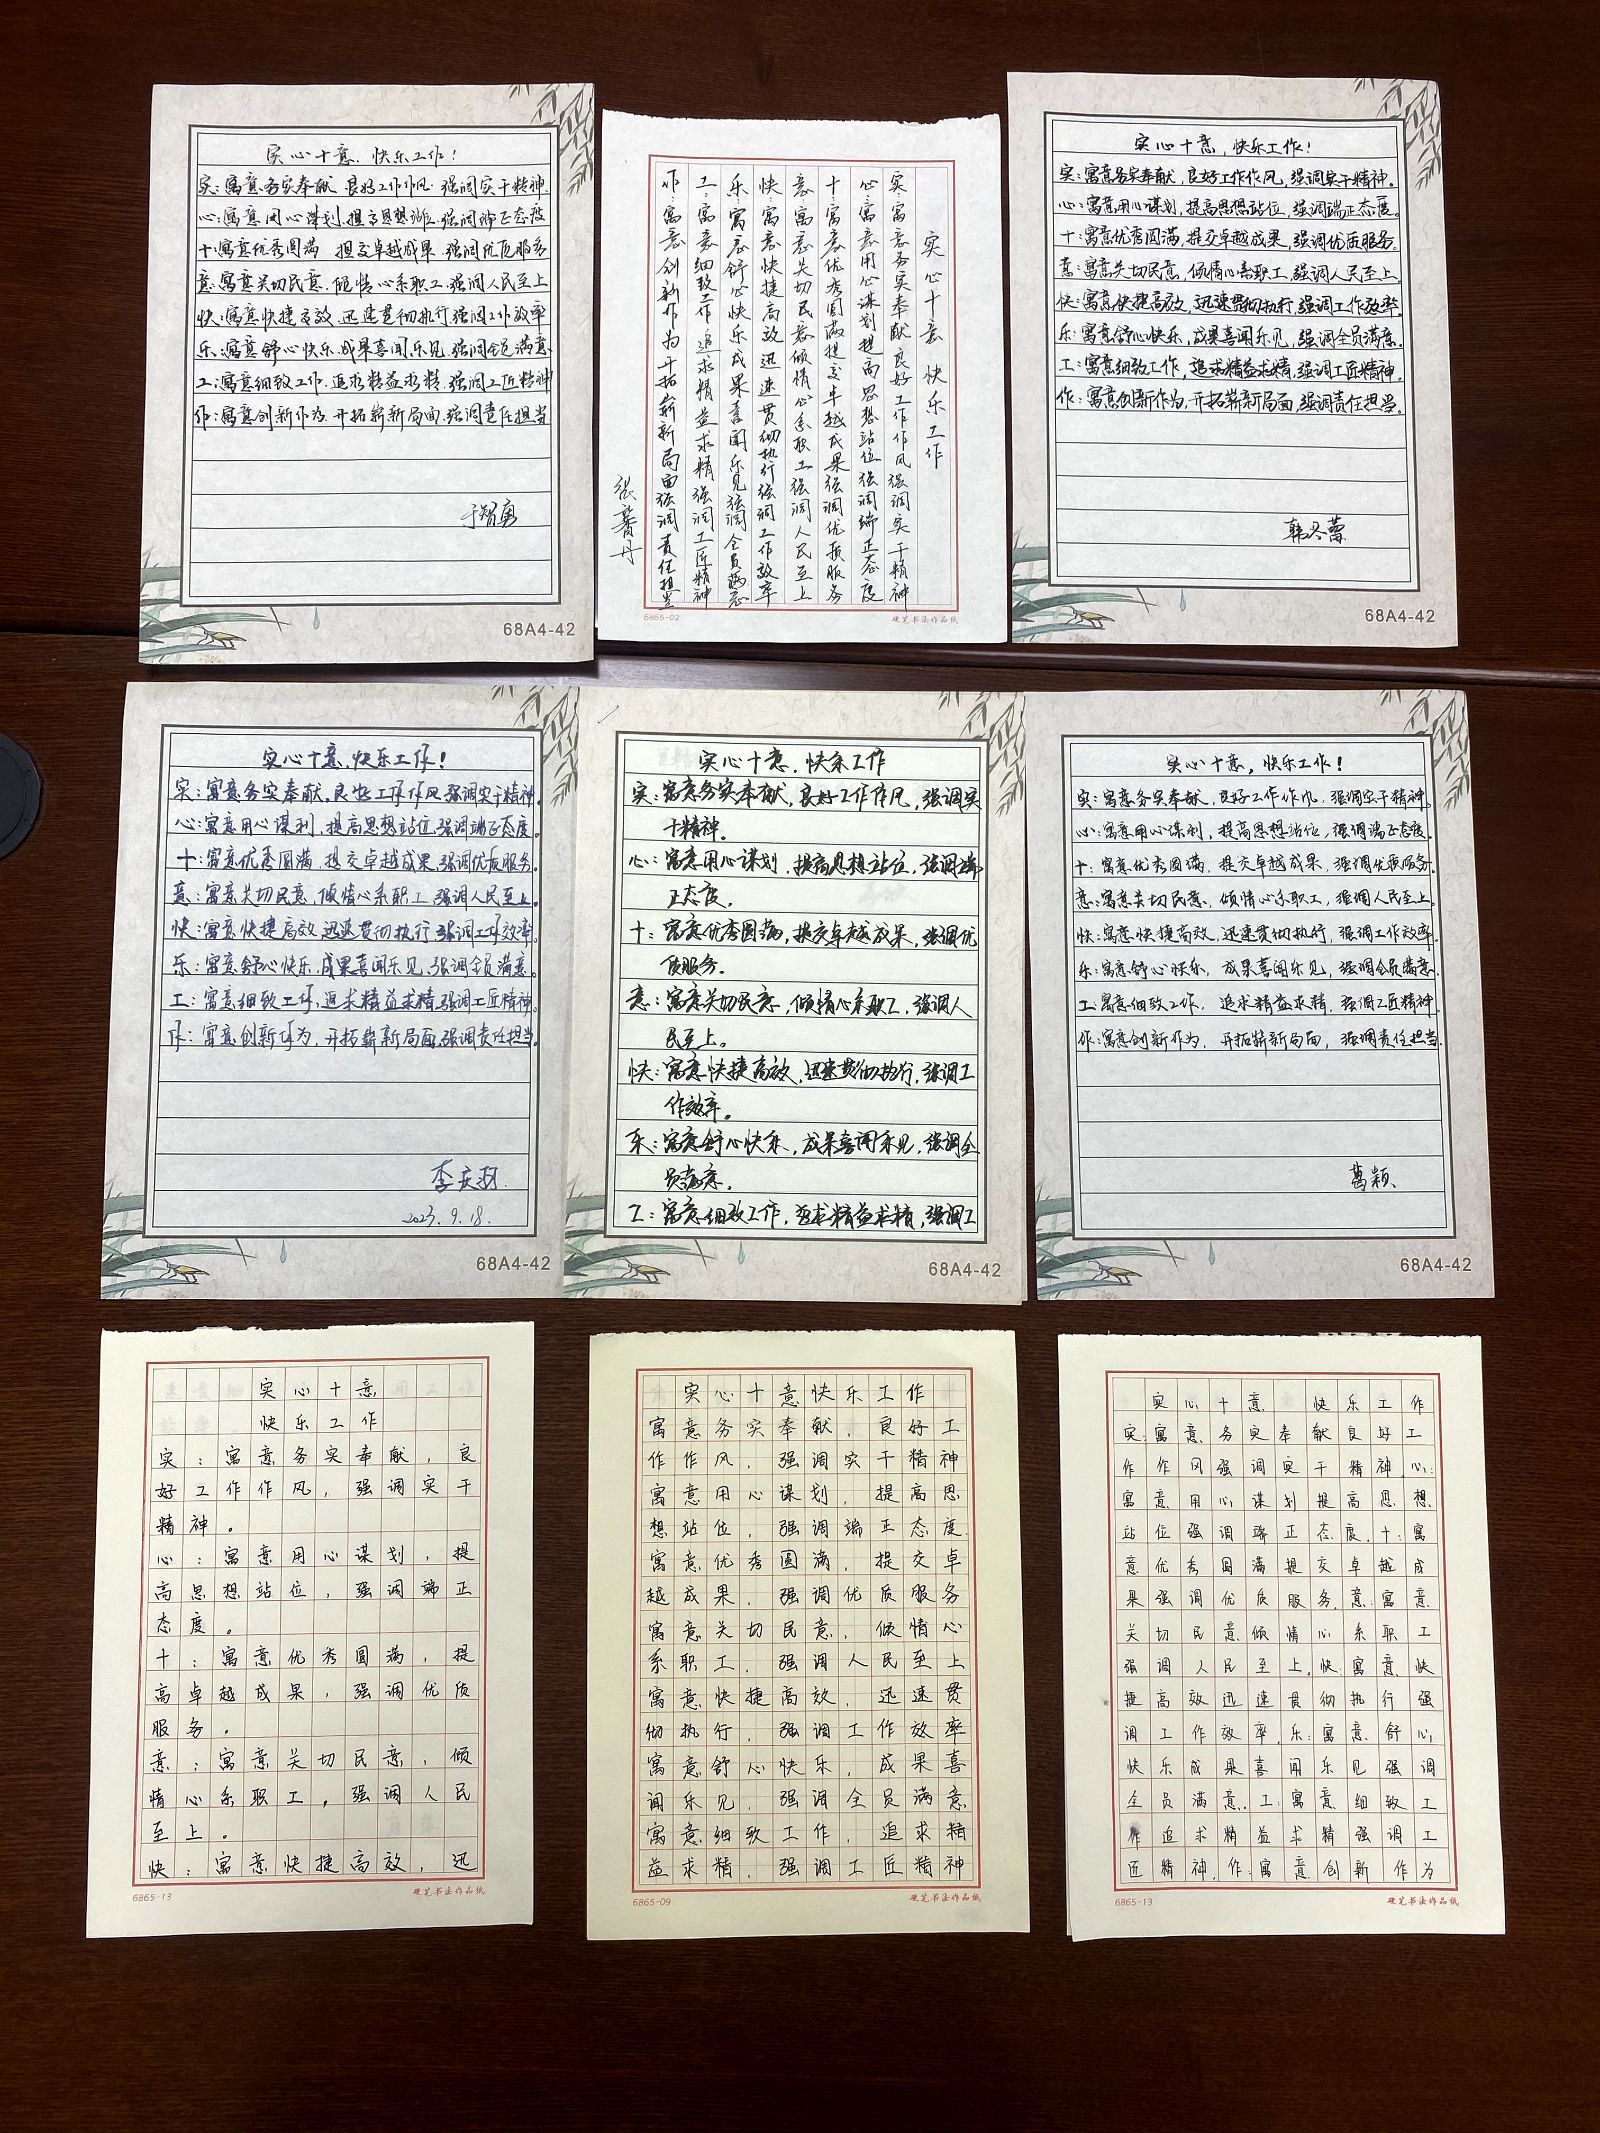 实心十意、快乐工作！
实：寓意务实奉献 良好工作作风 强调实干精神
心：寓意用心谋划 提高思想站位 强调端正态度
十：寓意优秀圆满 提交卓越成果 强调优质服务
意：寓意关切民意 倾情心系职工 强调人民至上
快：寓意快捷高效 迅速贯彻执行 强调工作效率
乐：寓意舒心快乐 成果喜闻乐见 强调全员满意
工：寓意细致工作 追求精益求精 强调工匠精神
作：寓意创新作为 开拓崭新局面 强调责任担当
68A4-42
实心十意 快乐工作
实：寓意务实奉献良好工作作风强调实干精神
心：寓意用心谋划提高思想站位强调端正态度
十：寓意优秀圆满提交卓越成果强调优质服务
意：寓意关切民意倾情心系职工强调人民至上
快：寓意快捷高效迅速贯彻执行强调工作效率
乐：寓意舒心快乐成果喜闻乐见强调全员满意
工：寓意细致工作追求精益求精强调工匠精神
作：寓意创新作为开拓崭新局面强调责任担当
张馨丹
6865-02
硬笔书法作品纸
实心十意，快乐工作！
实：寓意务实奉献，良好工作作风，强调实干精神。
心：寓意用心谋划，提高思想站位，强调端正态度。
十：寓意优秀圆满，提交卓越成果，强调优质服务。
意：寓意关切民意，倾情心系职工，强调人民至上。
快：寓意快捷高效，迅速贯彻执行，强调工作效率。
乐：寓意舒心快乐，成果喜闻乐见，强调全员满意。
工：寓意细致工作，追求精益求精，强调工匠精神。
作：寓意创新作为，开拓崭新局面，强调责任担当。
韩冬蕾
68A4-42
实心十意、快乐工作！
实：寓意务实奉献，良好工作作风，强调实干精神。
心：寓意用心谋划，提高思想站位，强调端正态度。
十：寓意优秀圆满，提交卓越成果，强调优质服务。
意：寓意关切民意，倾情心系职工，强调人民至上。
快：寓意快捷高效，迅速贯彻执行，强调工作效率。
乐：寓意舒心快乐，成果喜闻乐见，强调全员满意。
工：寓意细致工作，追求精益求精，强调工匠精神。
作：寓意创新作为，开拓崭新局面，强调责任担当。
2023.9.18.
68A4-42
实心十意、快乐工作
实：寓意务实奉献，良好工作作风，强调实
干精神。
心：寓意用心谋划，提高思想站位，强调端
正态度。
十：寓意优秀圆满，提交卓越成果，强调优
质服务。
意：寓意关切民意，倾情心系职工，强调人
民至上。
快：寓意快捷高效，迅速贯彻执行，强调工
作效率。
乐：寓意舒心快乐，成果喜闻乐见，强调全
员满意。
工：寓意细致工作，追求精益求精，强调工
68A4-42
实心十意，快乐工作！
实：寓意务实奉献，良好工作作风，强调实干精神。
心：寓意用心谋划，提高思想站位，强调端正态度。
十：寓意优秀圆满，提交卓越成果，强调优质服务
意：寓意关切民意，倾情心系职工，强调人民至上。
快：寓意快捷高效，迅速贯彻执行，强调工作效率。
乐：寓意舒心快乐，成果喜闻乐见，强调全员满意
工：寓意细致工作，追求精益求精，强调工匠精神
作：寓意创新作为，开拓崭新局面，强调责任担当
葛颖
68A4-42
实心十意
快乐工作
实：寓意务实奉献，良
好工作作风，强调实干
精神。
心：寓意用心谋划，提
高思想站位，强调端正
态度。
十：寓意优秀圆满，提
高卓越成果，强调优质
服务。
意：寓意关切民意，倾
情心系职工，强调人民
至上。
快：寓意快捷高效，迅
6865-13
硬笔书法作品纸
实心十意快乐工作
寓意务实奉献，良好工
作作风，强调实干精神
寓意用心谋划，提高思
想站位，强调端正态度
寓意优秀圆满，提交卓
越成果，强调优质服务
寓意关切民意，倾情心
系职工，强调人民至上
寓意快捷高效，迅速贯
彻执行，强调工作效率
寓意舒心快乐，成果喜
闻乐见，强调全员满意
寓意细致工作，追求精
益求精，强调工匠精神
6865-09
硬笔书法作品纸
实心十意 快乐工作
实：寓意务实奉献良好工
作作风强调实干精神，心：
寓意用心谋划提高思想
站位强调端正态度，十：寓
意优秀圆满提交卓越成
果强调优质服务，意：寓意
关切民意倾情心系职工
强调人民至上，快：寓意快
捷高效迅速贯彻执行强
调工作效率，乐：寓意舒心
快乐成果喜闻乐见强调
全员满意，工：寓意细致工
作追求精益求精强调工
匠精神，作：寓意创新作为
6865-13
硬笔书法作品纸